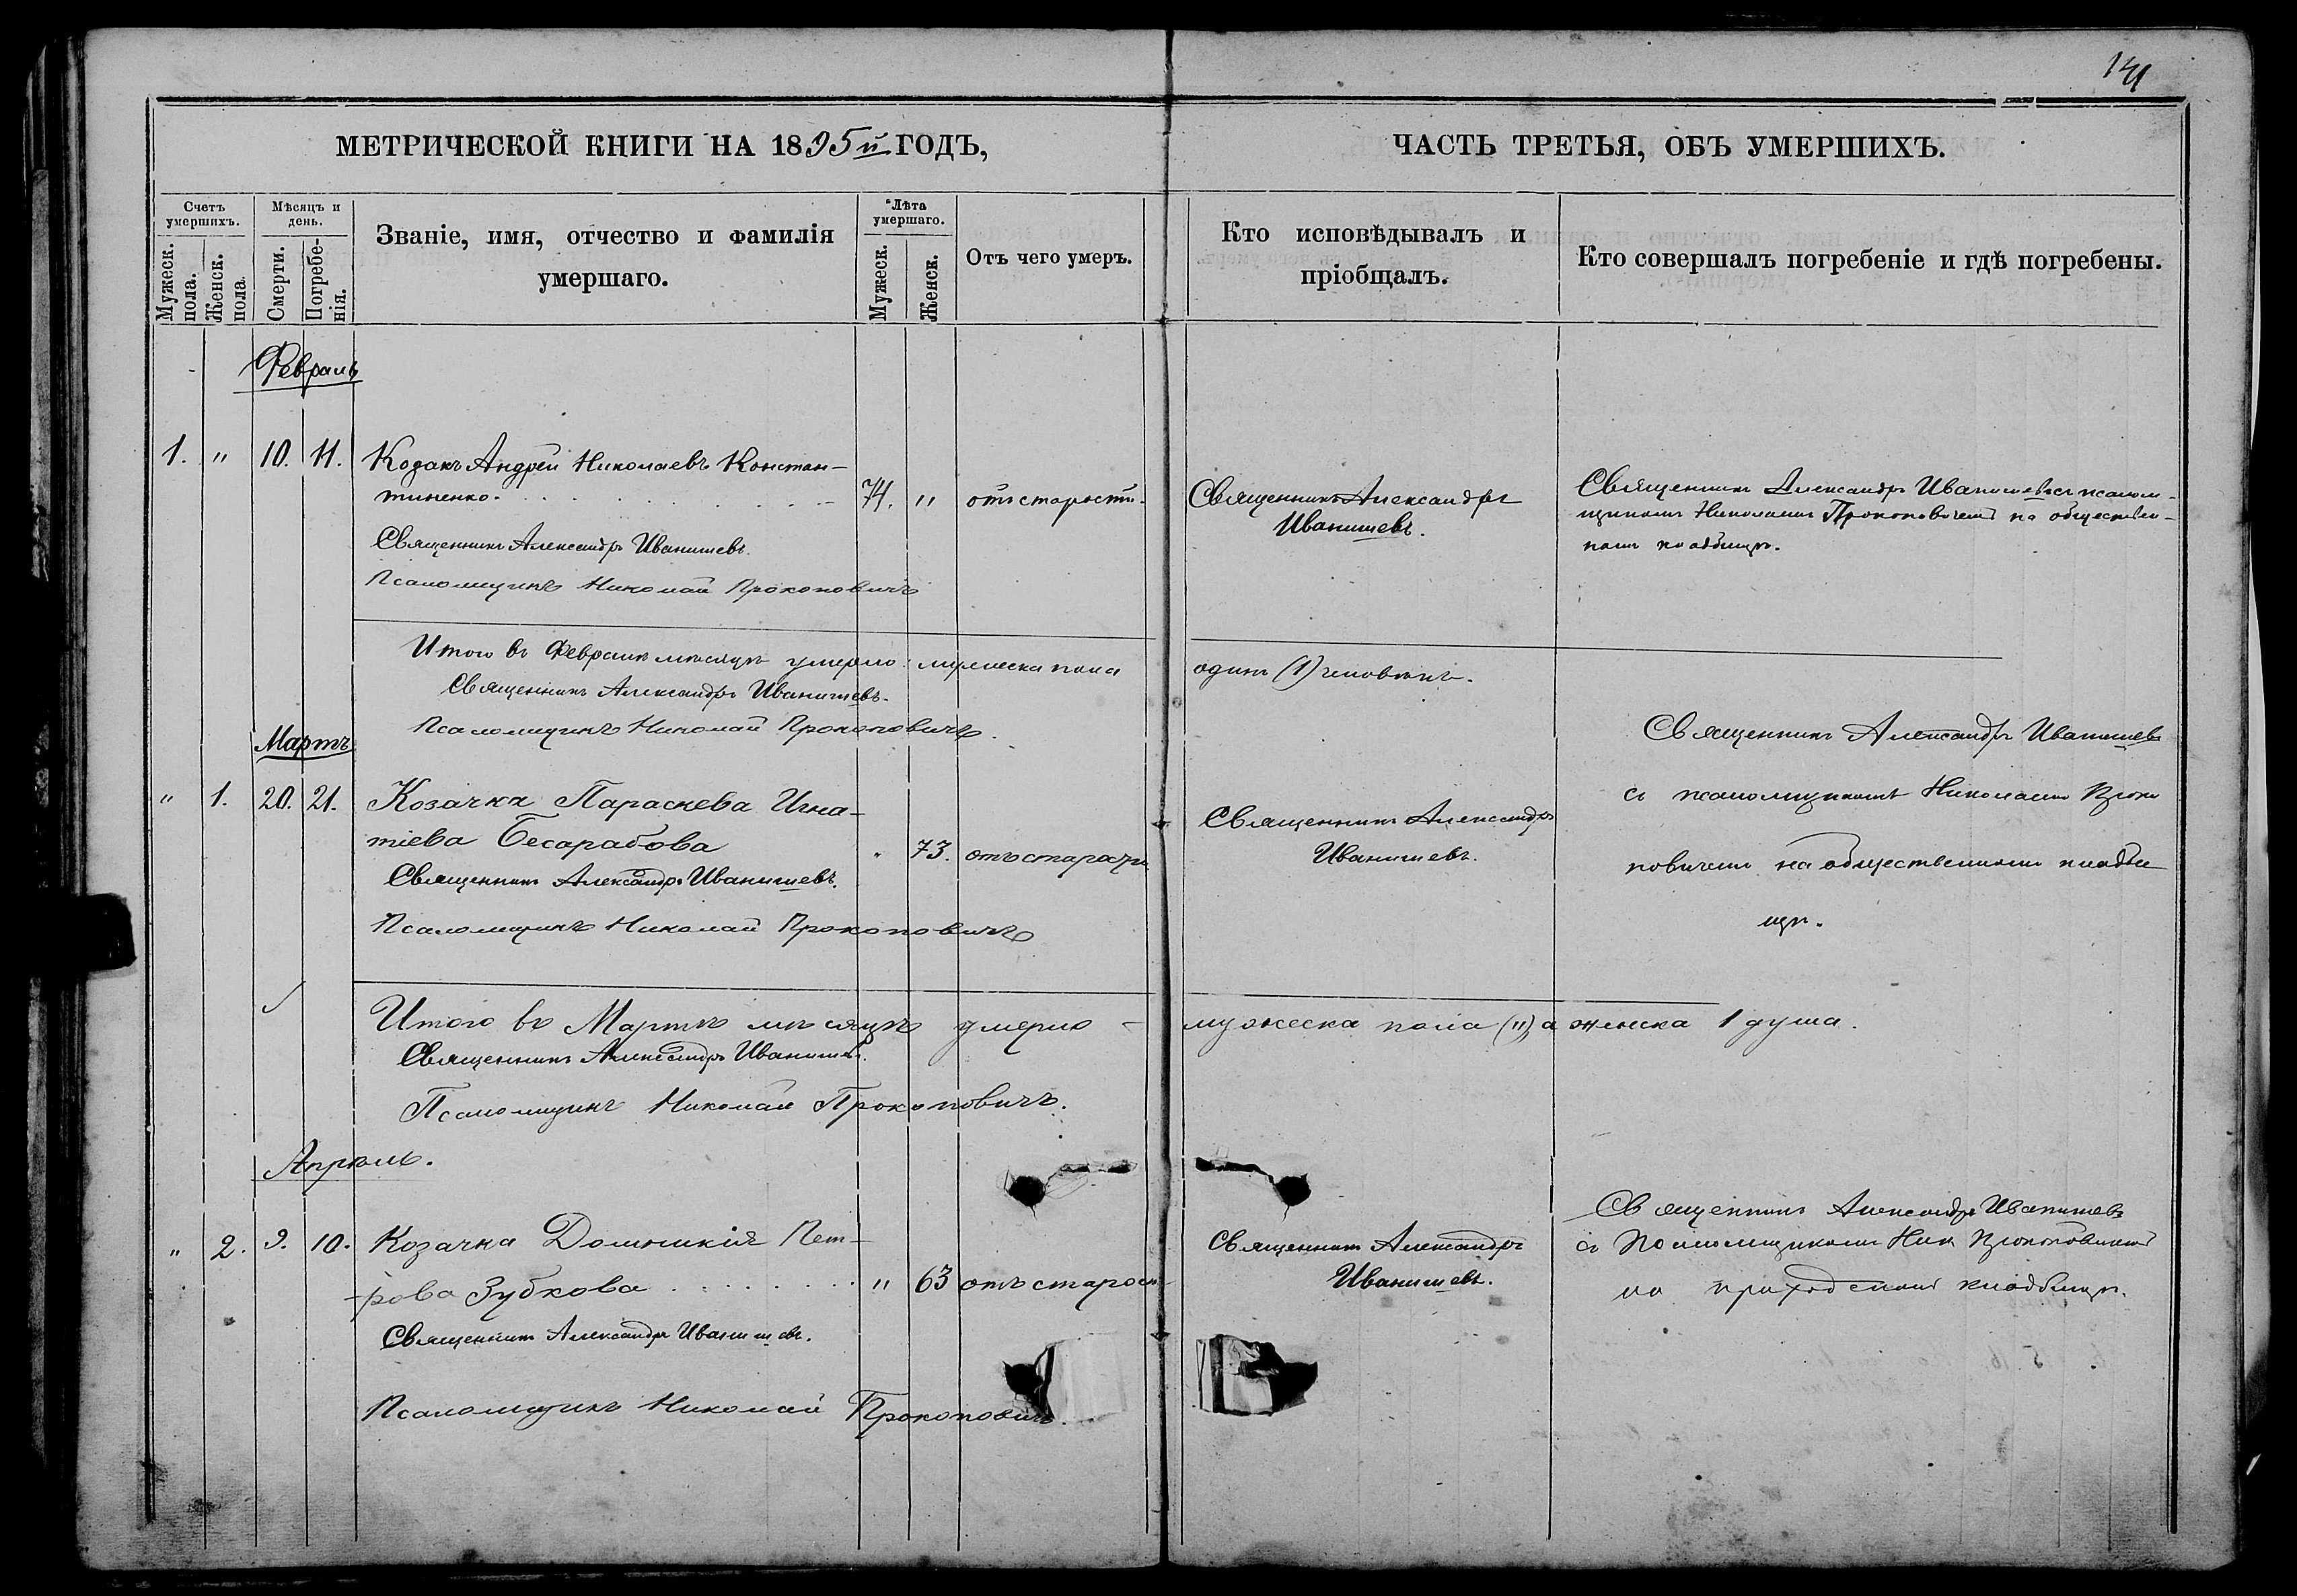 141
МЕТРИЧЕСКОЙ КНИГИ НА 1895й ГОДЪ,
ЧАСТЬ ТРЕТЬЯ, ОБЪ УМЕРШИХЪ.
Счетъ умершихъ.
Мужеск. пола.
Женск. пола.
Мѣсяцъ и день.
Смерти.
Погребенія.
Званіе, имя, отчество и фамилія
умершаго.
Лѣта умершаго.
Мужеск.
Женск.
Отъ чего умеръ.
Кто исповѣдывалъ и
пріобщалъ.
Кто совершалъ погребеніе и гдѣ погребены.
Февраль
1. " 10. 11. Козакъ Андрей Николаевъ Констан-
тиненко. 74. " отъ старости.
Священникъ Александръ Иванишевъ.
Псаломщикъ Николай Прокоповичъ
Священникъ Александръ
Иванишевъ.
Священникъ Александръ Иванишевъ съ псалом-
щикомъ Николаемъ Прокоповичемъ на обществен-
номъ кладбищѣ.
Итого въ Февралѣ мѣсяцѣ умерло: мужеска пола один (1) человѣкъ.
Священникъ Александръ Иванишевъ.
Псаломщикъ Николай Прокоповичъ.
Мартъ
" 1. 20. 21. Козачка Параскева Игна-
тіева Бесарабова " 73. отъ старости
Священникъ Александръ Иванишевъ.
Псаломщикъ Николай Прокоповичъ
Священникъ Александръ
Иванишевъ.
Священникъ Александръ Иванишевъ
съ псаломщикомъ Николаемъ Проко
повичемъ на общественномъ кладби
щѣ.
Итого въ Мартѣ мѣсяцѣ умерло - мужеска пола ("), а женска 1 душа.
Священникъ Александръ Иванишевъ.
Псаломщикъ Николай Прокоповичъ.
Апрѣль.
" 2. 9. 10. Козачка Домникія Пет-
рова Зубкова " 63 отъ старос
Священникъ Александръ Иванишевъ.
Псаломщикъ Николай Прокоповичъ.
Священникъ Александръ
Иванишевъ.
Священникъ Александръ Иванишевъ
съ Псаломщикомъ Ник Прокоповичемъ
на приходскомъ кладбищѣ.